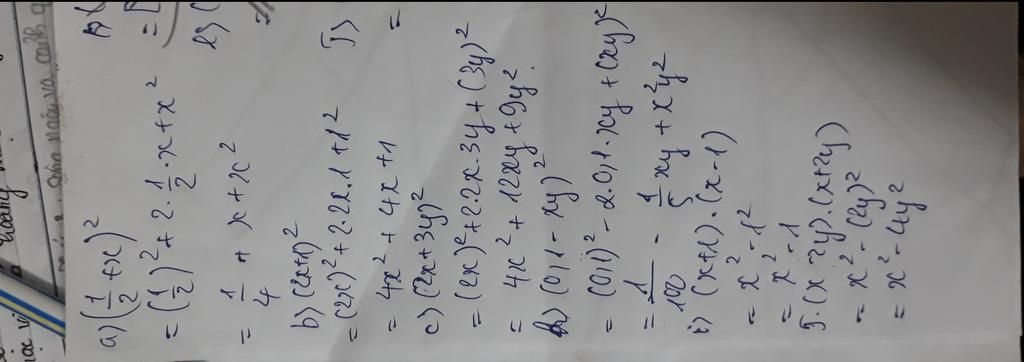 a) (1/2 + x)²
= (1/2)² + 2 . 1/2 . x + x²
= 1/4 + x + x²
b) (2x+1)²
= (2x)² + 2.2x.1 + 1²
= 4x² + 4x + 1
c) (2x+3y)²
= (2x)² + 2.2x.3y + (3y)²
= 4x² + 12xy + 9y².
h) (0,1 - xy)²
= (0,1)² - 2.0,1.xy + (xy)²
= 1/100 - 1/5 xy + x²y²
i) (x+1).(x-1)
= x² - 1²
= x² - 1
J. (x - 2y).(x+2y)
= x² - (2y)²
= x² - 4y²